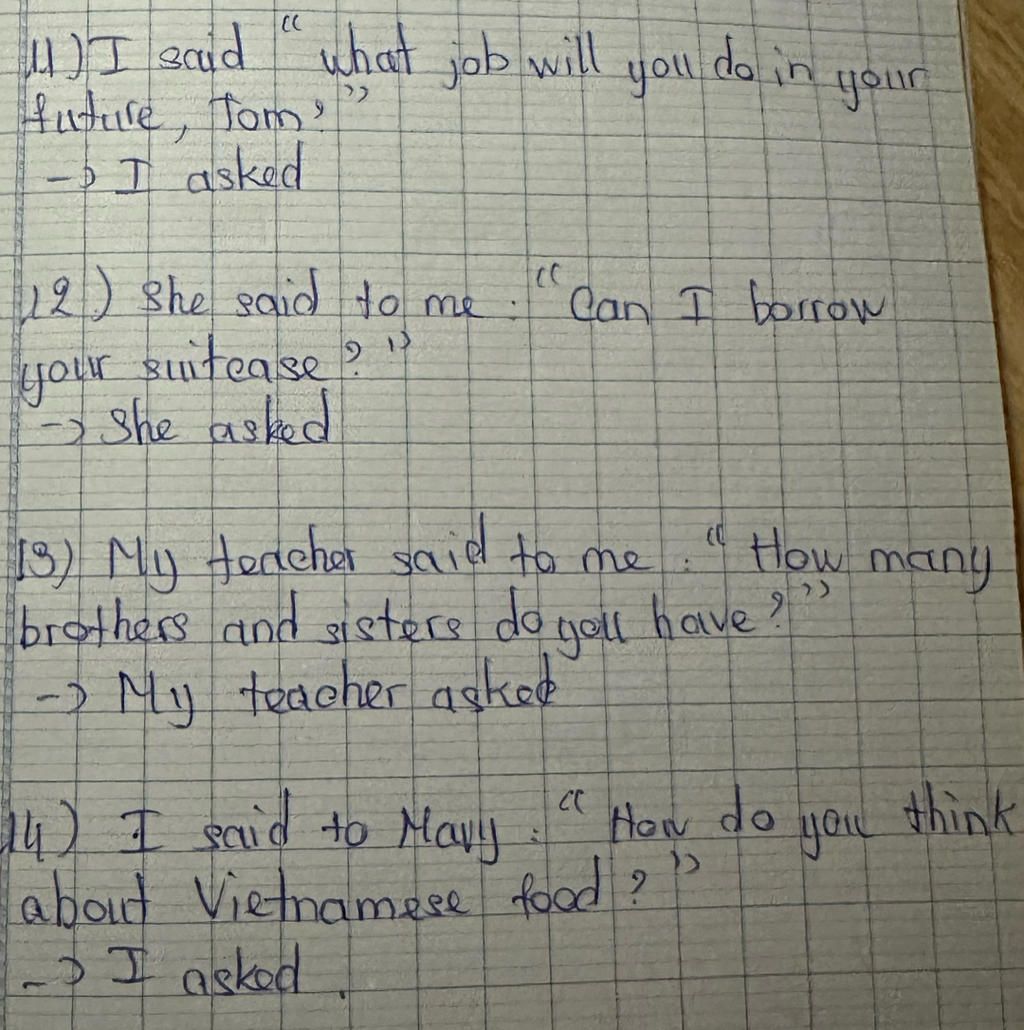 11) I said "what job will you do in your
future, Tom?"
-> I asked
12.) She said to me : "Can I borrow
your suitcase?"
-> She asked
13) My teacher said to me : "How many
brothers and sisters do you have?"
-> My teacher asked
14) I said to Mary : "How do you think
about Vietnamese food?"
-> I asked.